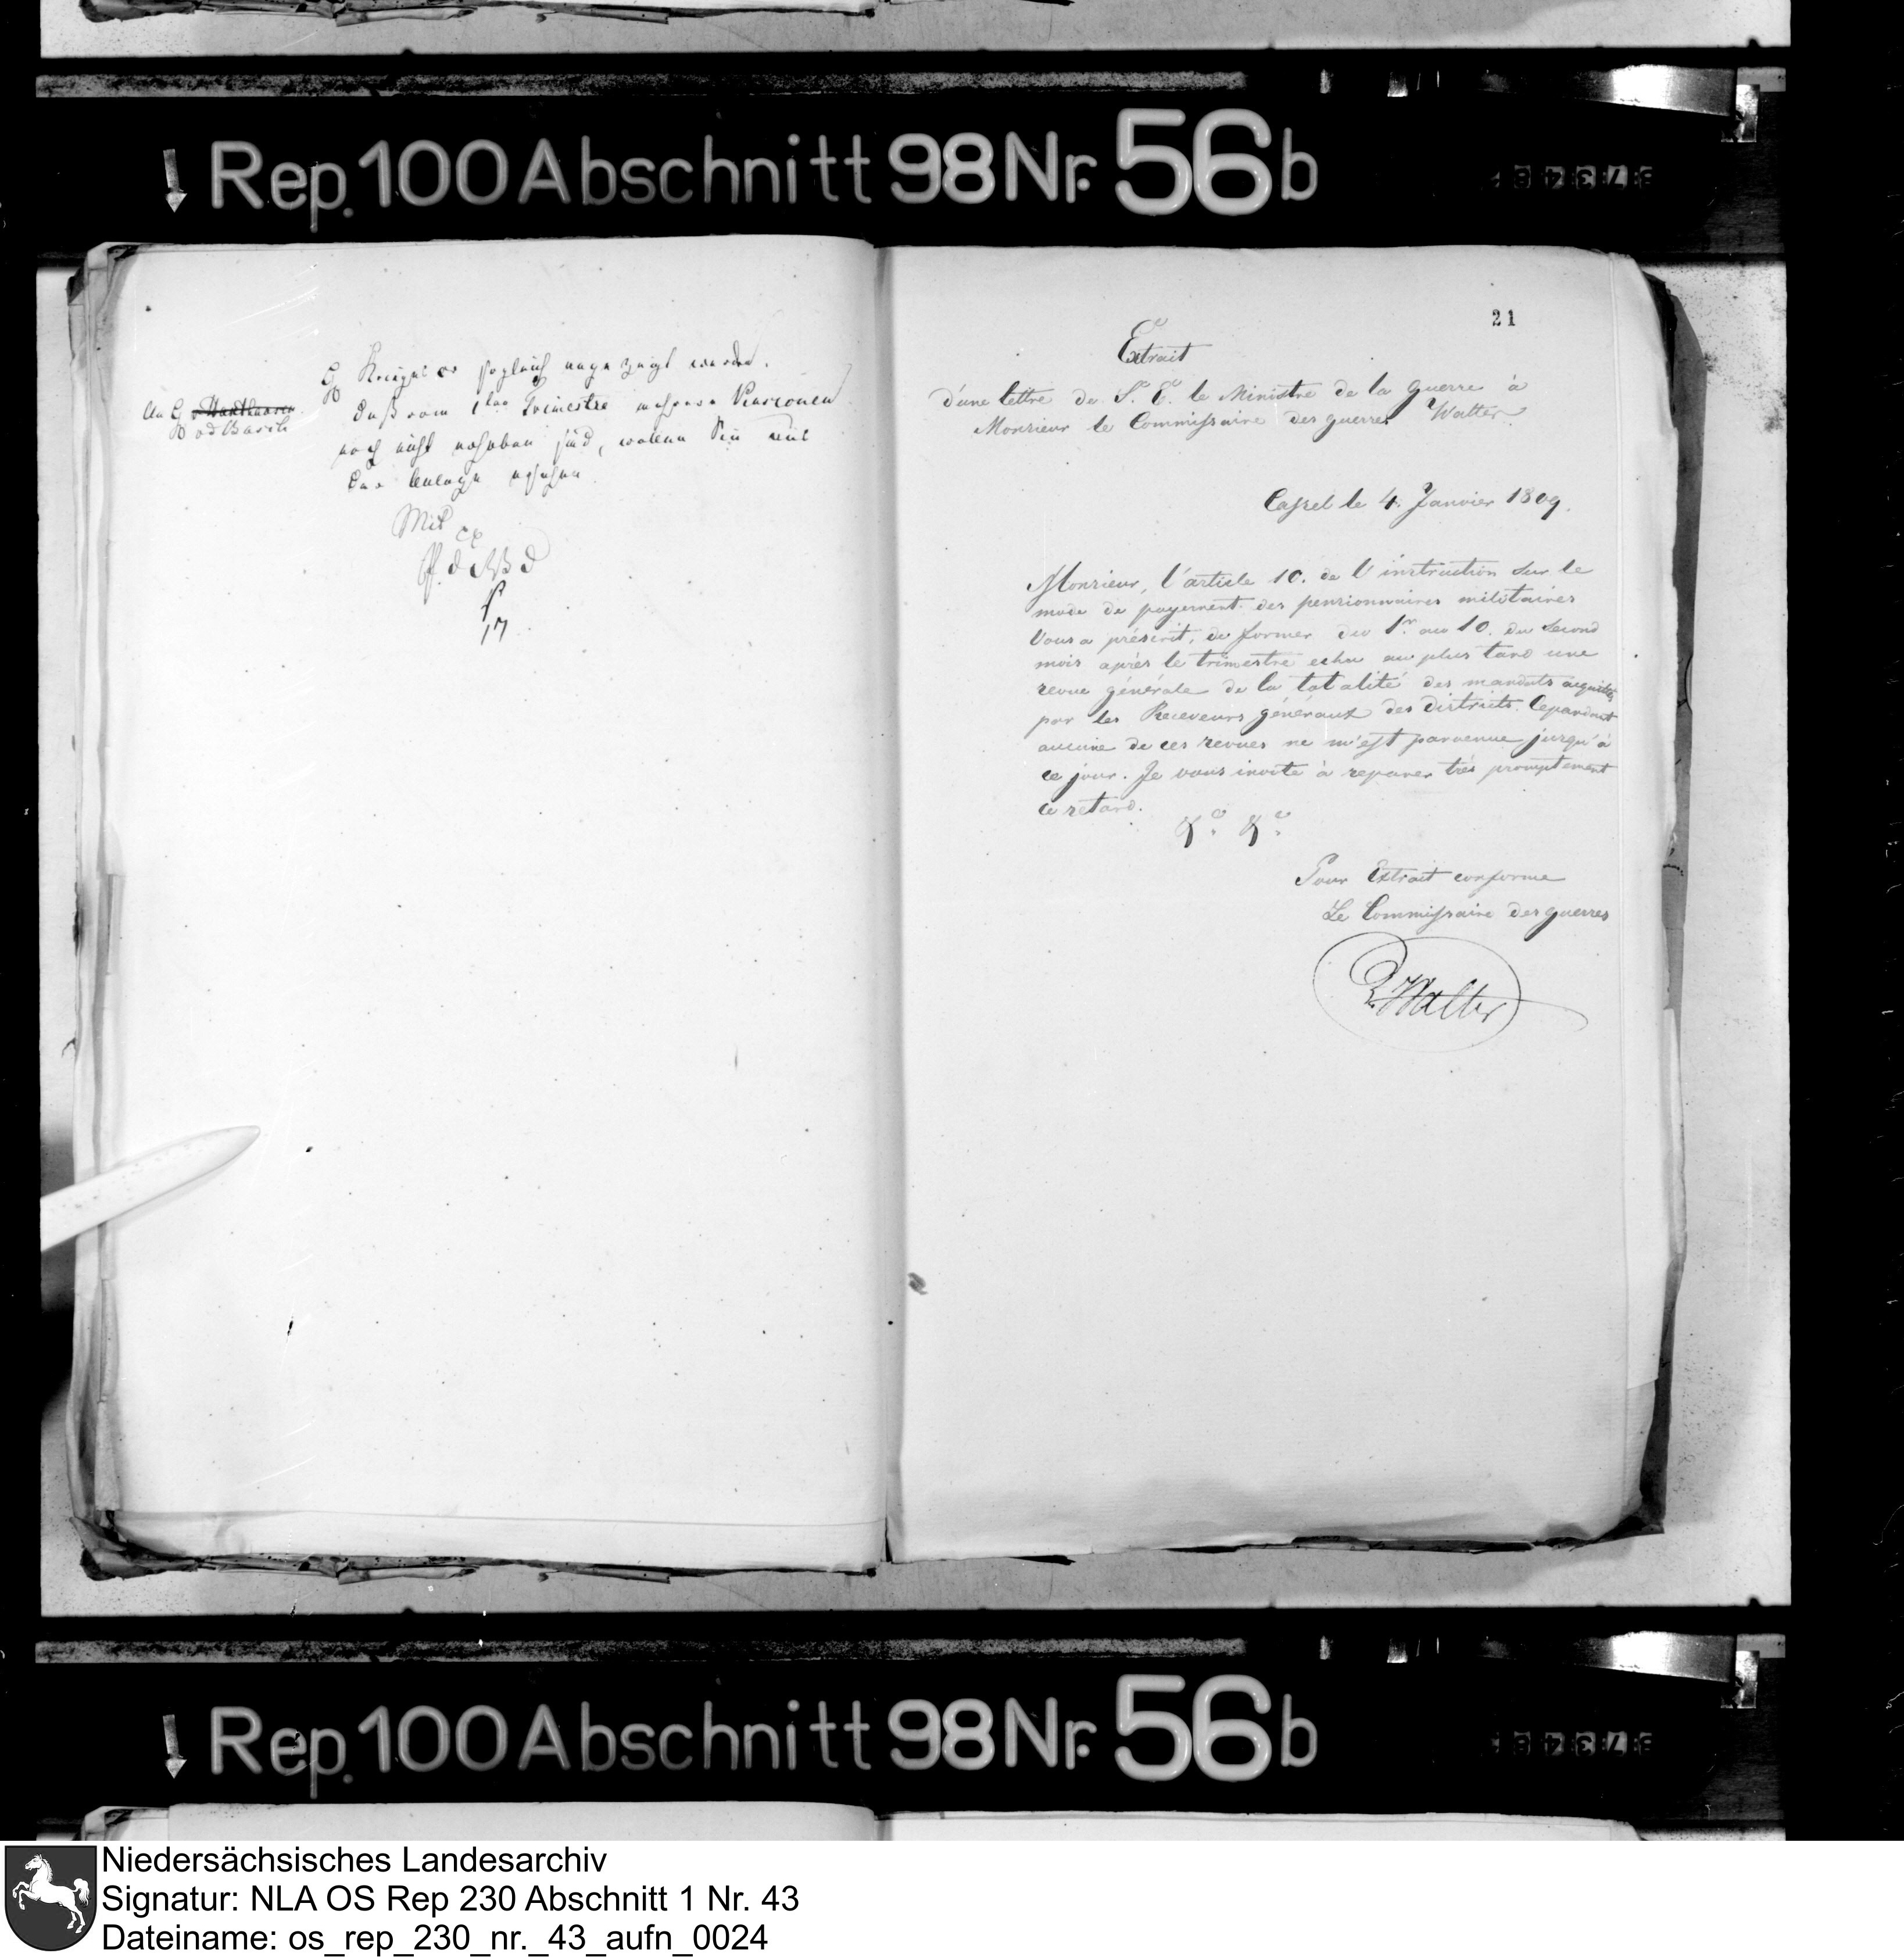 Rep. 100 Abschnitt 98 Nr. 56 b
sogleich angezeigt werden.
daß vom 1ten Trimestre mehrere Pensionen
noch nicht erhoben sind,
17
21
Extrait
d'une lettre de S. E. le Ministre de la guerre à
Monsieur le Commissaire des guerres Walter
Cassel le 4. Janvier 1809.
Monsieur, l'article 10. de l'instruction sur le
mode de payement des pensionnaires militaires
Vous a préscrit, de former du 1r au 10. du second
mois après le trimestre echu au plus tard une
revue générale de la totalité des mandats acquittés
par les Receveurs généraux des districts. Cependant
aucune de ces revues ne m'est parvenue jusqu'à
ce jour. Je vous invite à reparer très promptement
ce retard.
&c. &c.
Pour Extrait conforme
Le Commissaire des guerres
Walter
Rep. 100 Abschnitt 98 Nr. 56 b
Niedersächsisches Landesarchiv
Signatur: NLA OS Rep 230 Abschnitt 1 Nr. 43
Dateiname: os_rep_230_nr._43_aufn_0024